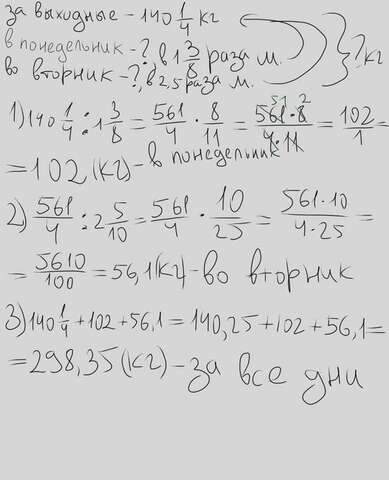 за выходные - 140 1/4 кг
в понедельник - ?, в 1 3/8 раза м.
во вторник - ?, в 2,5 раза м.
? кг
1) 140 1/4 : 1 3/8 = 561/4 · 8/11 = 561 · 8/4 · 11 = 102/1 =
51 2
= 102 (кг) - в понедельник
2) 561/4 : 2 5/10 = 561/4 · 10/25 = 561 · 10/4 · 25 =
= 5610/100 = 56,1 (кг) - во вторник
3) 140 1/4 + 102 + 56,1 = 140,25 + 102 + 56,1 =
= 298,35 (кг) - за все дни